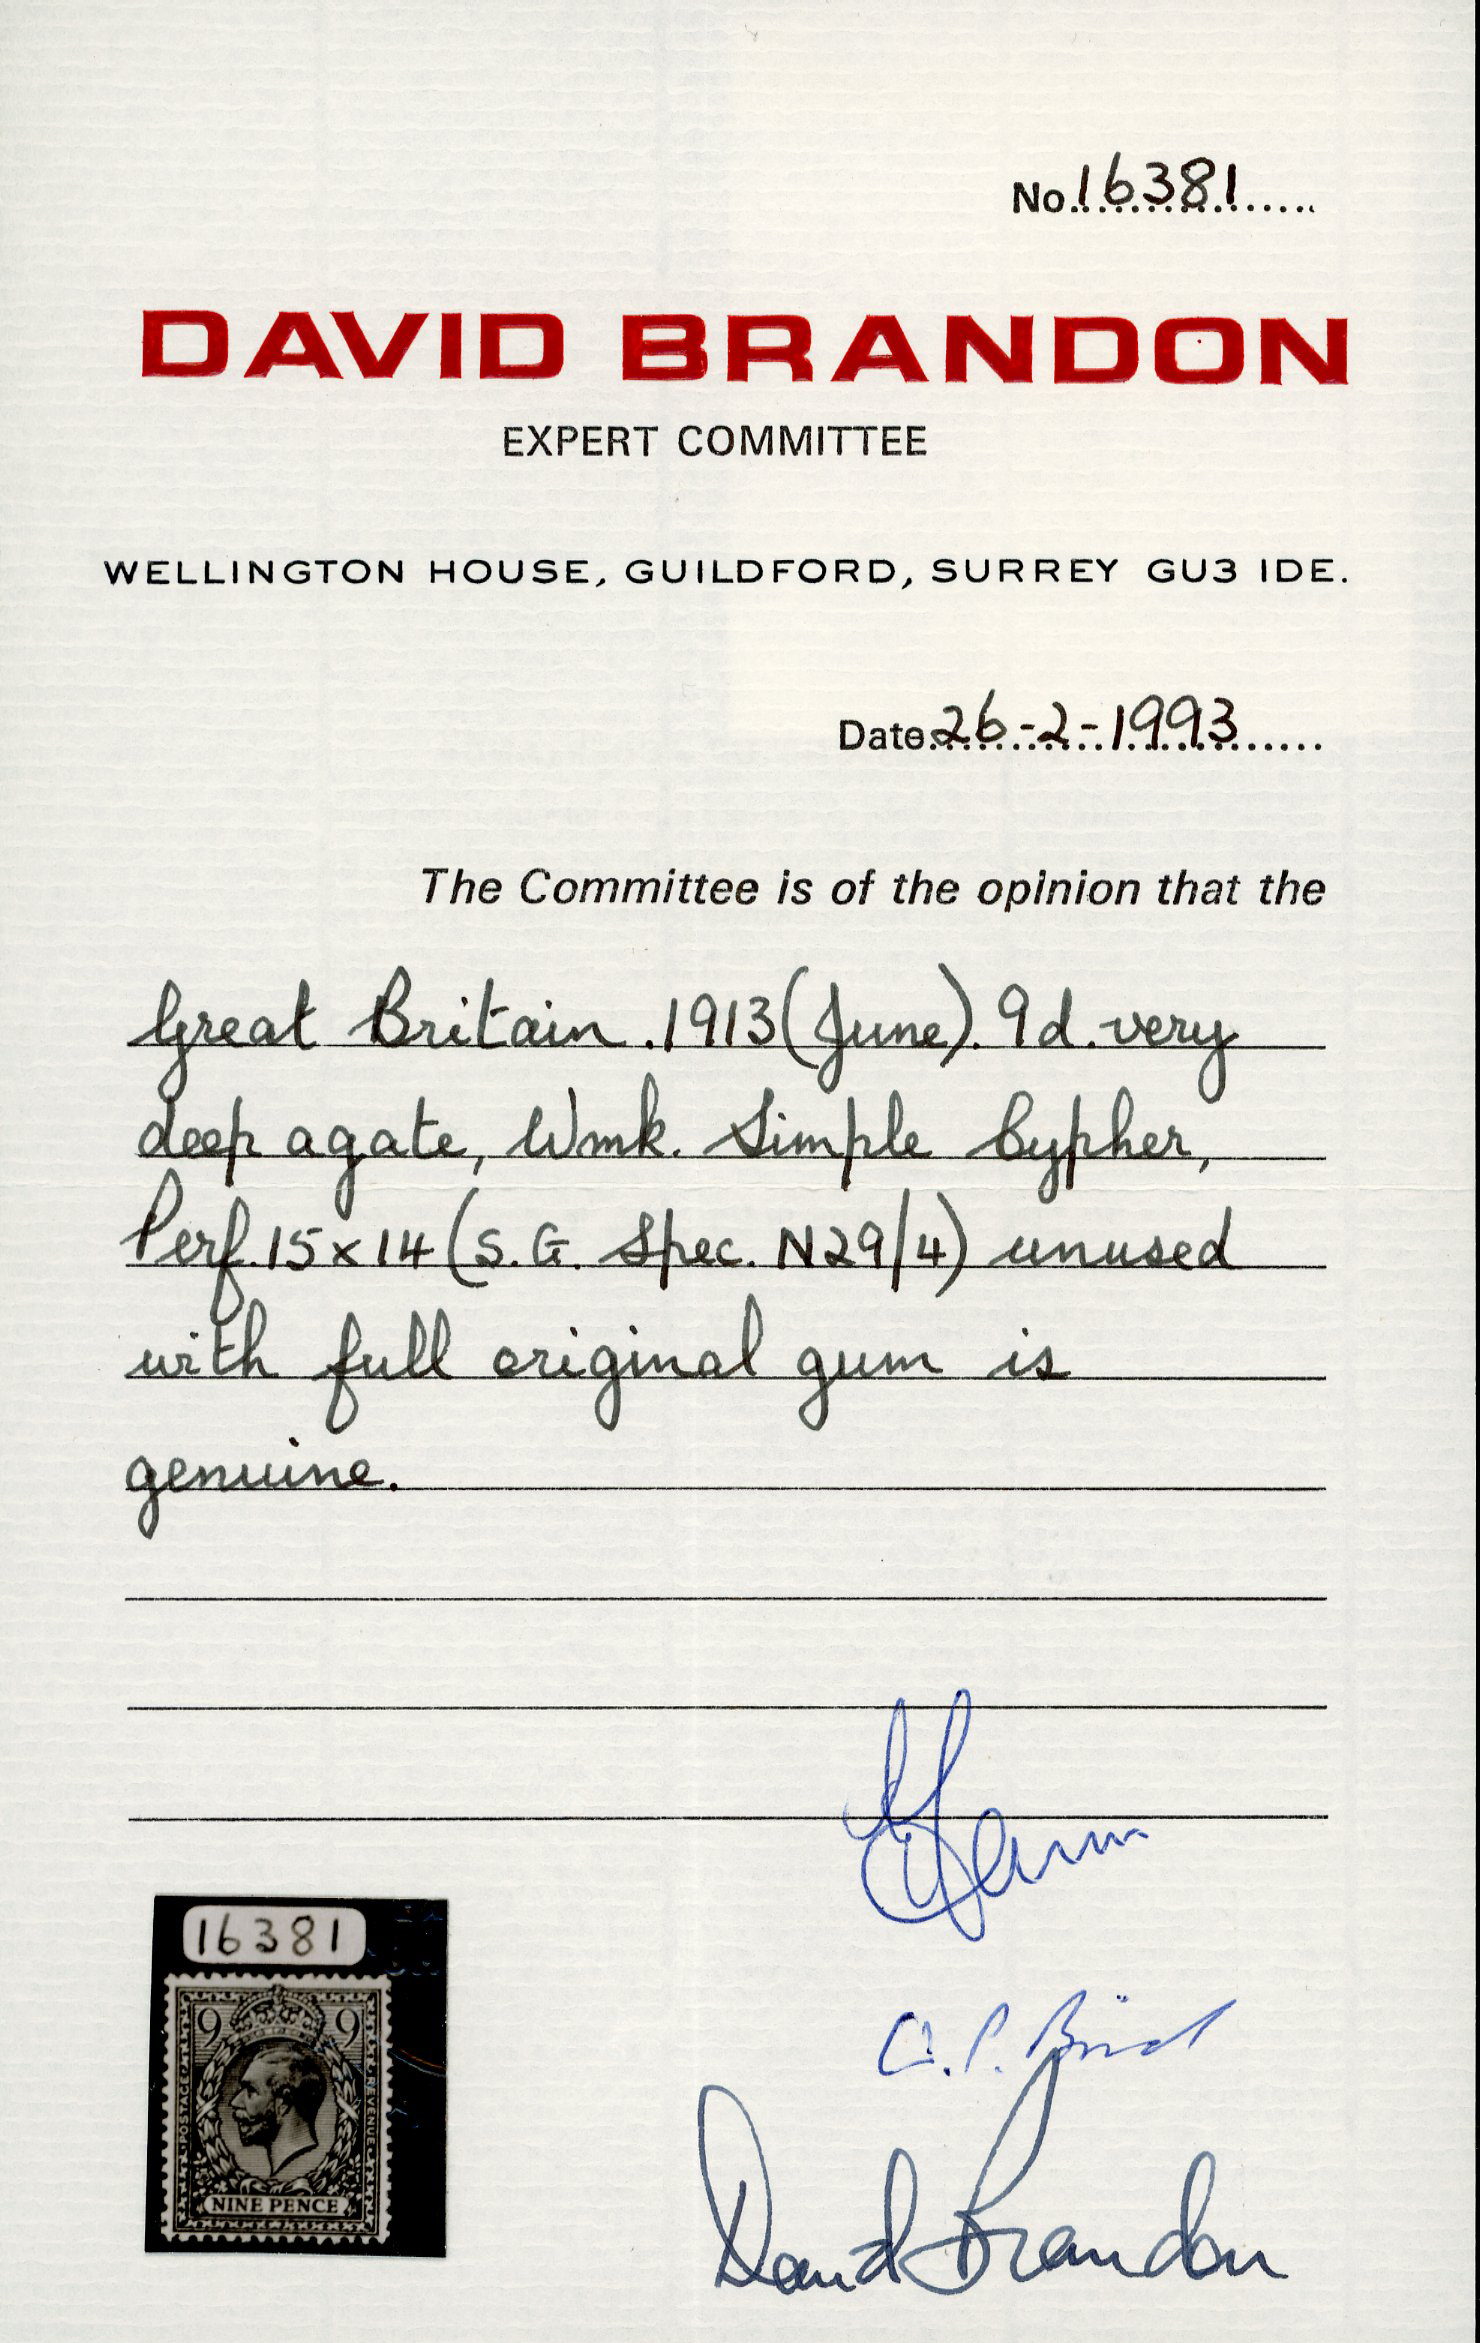 No. 16381
DAVID BRANDON
EXPERT COMMITTEE
WELLINGTON HOUSE, GUILDFORD, SURREY GU3 IDE.
Date 26-2-1993
The Committee is of the opinion that the
Great Britain. 1913 (June). 9d. very
deep agate, Wmk. Simple Cypher,
Perf. 15x14 (S.G. Spec. N29/4) unused
with full original gum is
genuine.
David Brandon
16381
9 9
POSTAGE REVENUE
NINE PENCE